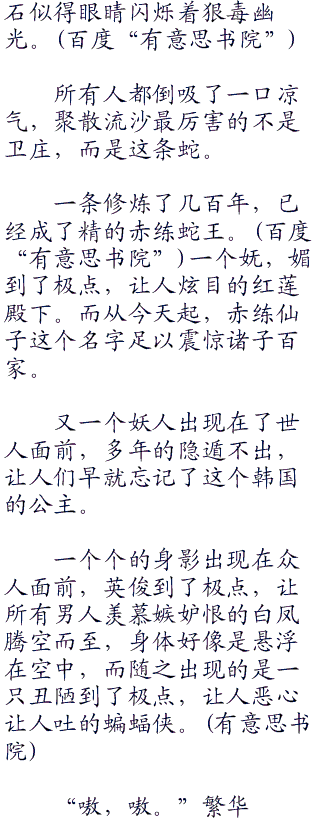 石似得眼睛闪烁着狠毒幽
光。(百度“有意思书院”)
所有人都倒吸了一口凉
气，聚散流沙最厉害的不是
卫庄，而是这条蛇。
一条修炼了几百年，已
经成了精的赤练蛇王。(百度
“有意思书院”)一个妩，媚
到了极点，让人炫目的红莲
殿下。而从今天起，赤练仙
子这个名字足以震惊诸子百
家。
又一个妖人出现在了世
人面前，多年的隐遁不出，
让人们早就忘记了这个韩国
的公主。
一个个的身影出现在众
人面前，英俊到了极点，让
所有男人羡慕嫉妒恨的白凤
腾空而至，身体好像是悬浮
在空中，而随之出现的是一
只丑陋到了极点，让人恶心
让人吐的蝙蝠侠。(有意思书
院)
“嗷，嗷。”繁华